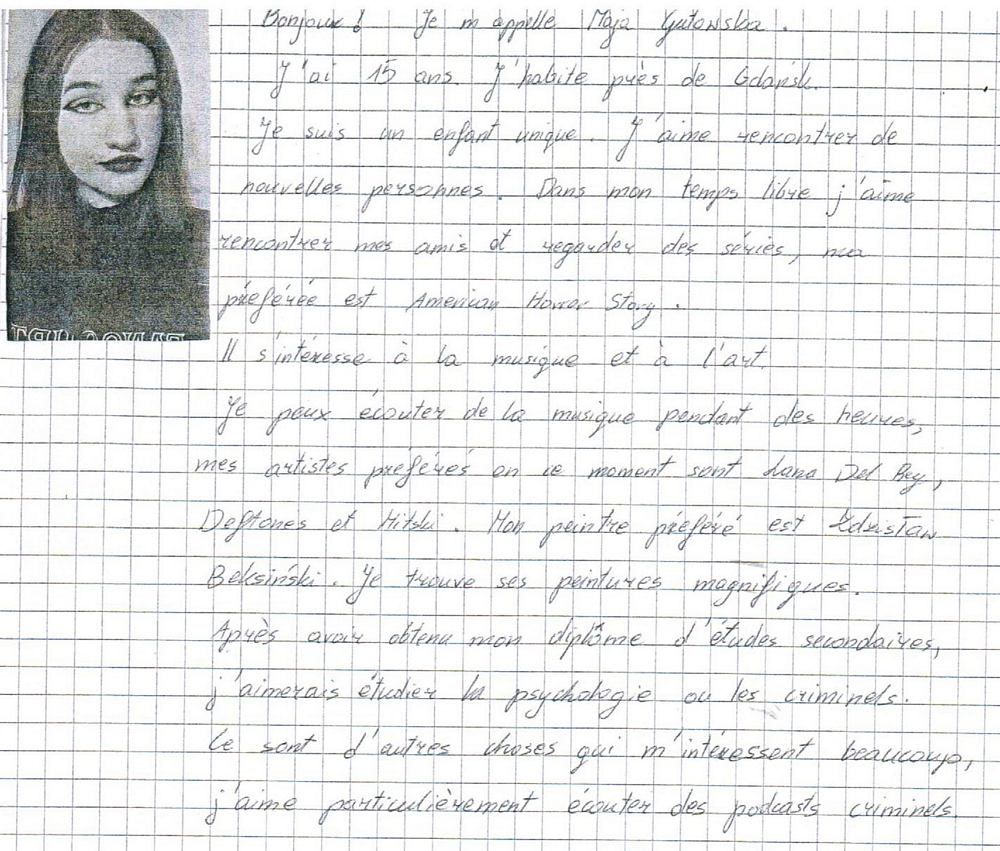 Bonjour! Je m'appelle Maja Gutowska.
J'ai 15 ans. J'habite près de Gdańsk.
Je suis un enfant unique. J'aime rencontrer de
nouvelles personnes. Dans mon temps libre j'aime
rencontrer mes amis et regarder des séries, ma
préférée est American Horror Story.
Il s'intéresse à la musique et à l'art.
Je peux écouter de la musique pendant des heures,
mes artistes préférés en ce moment sont Lana Del Rey,
Deftones et Mitski. Mon peintre préféré est Zdzisław
Beksiński. Je trouve ses peintures magnifiques.
Après avoir obtenu mon diplôme d'études secondaires,
j'aimerais étudier la psychologie ou les criminels.
Ce sont d'autres choses qui m'intéressent beaucoup,
j'aime particulièrement écouter des podcasts criminels.